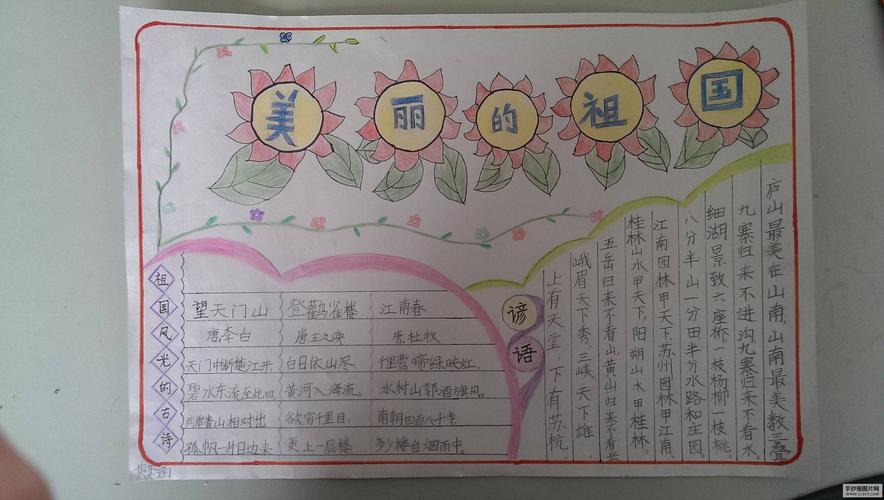 美丽的祖国
祖国风光的古诗
望天门山
唐李白
天门中断楚江开
碧水东流至此回
两岸青山相对出
孤帆一片日边来
登鹳雀楼
唐王之涣
白日依山尽
黄河入海流。
欲穷千里目,
更上一层楼
江南春
唐杜牧
千里莺啼绿映红,
水村山郭酒旗风。
南朝四百八十寺
多少楼台烟雨中。
谚语
庐山最美在山南,山南最美数三叠
九寨归来不进沟,九寨归来不看水
细湖景致六座桥一枝杨柳一枝桃
八分半山一分田半分水路和庄园
江南园林甲天下,苏州园林甲江南
桂林山水甲天下,阳朔山水甲桂林。
五岳归来不看山,黄山归来不看岳
峨眉天下秀,三峡天下雄
上有天堂,下有苏杭
手抄报图片网